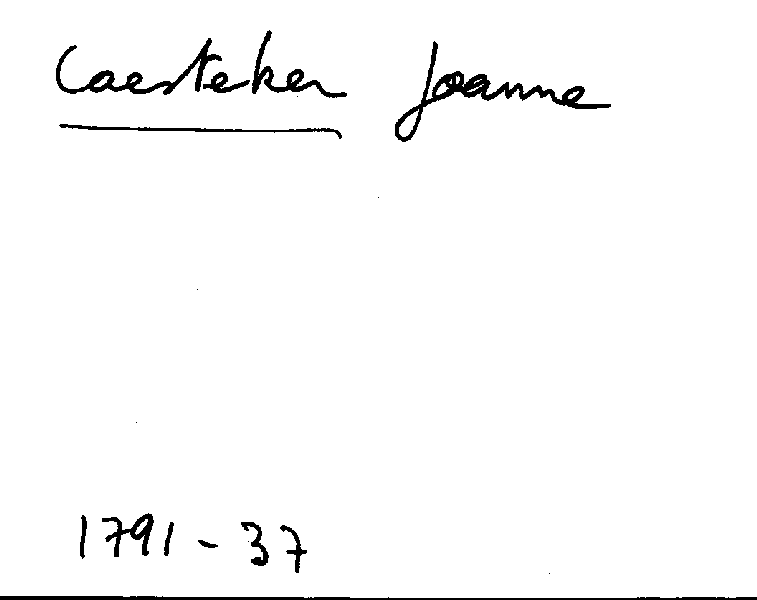 Caesteker Joanne
1791 - 37